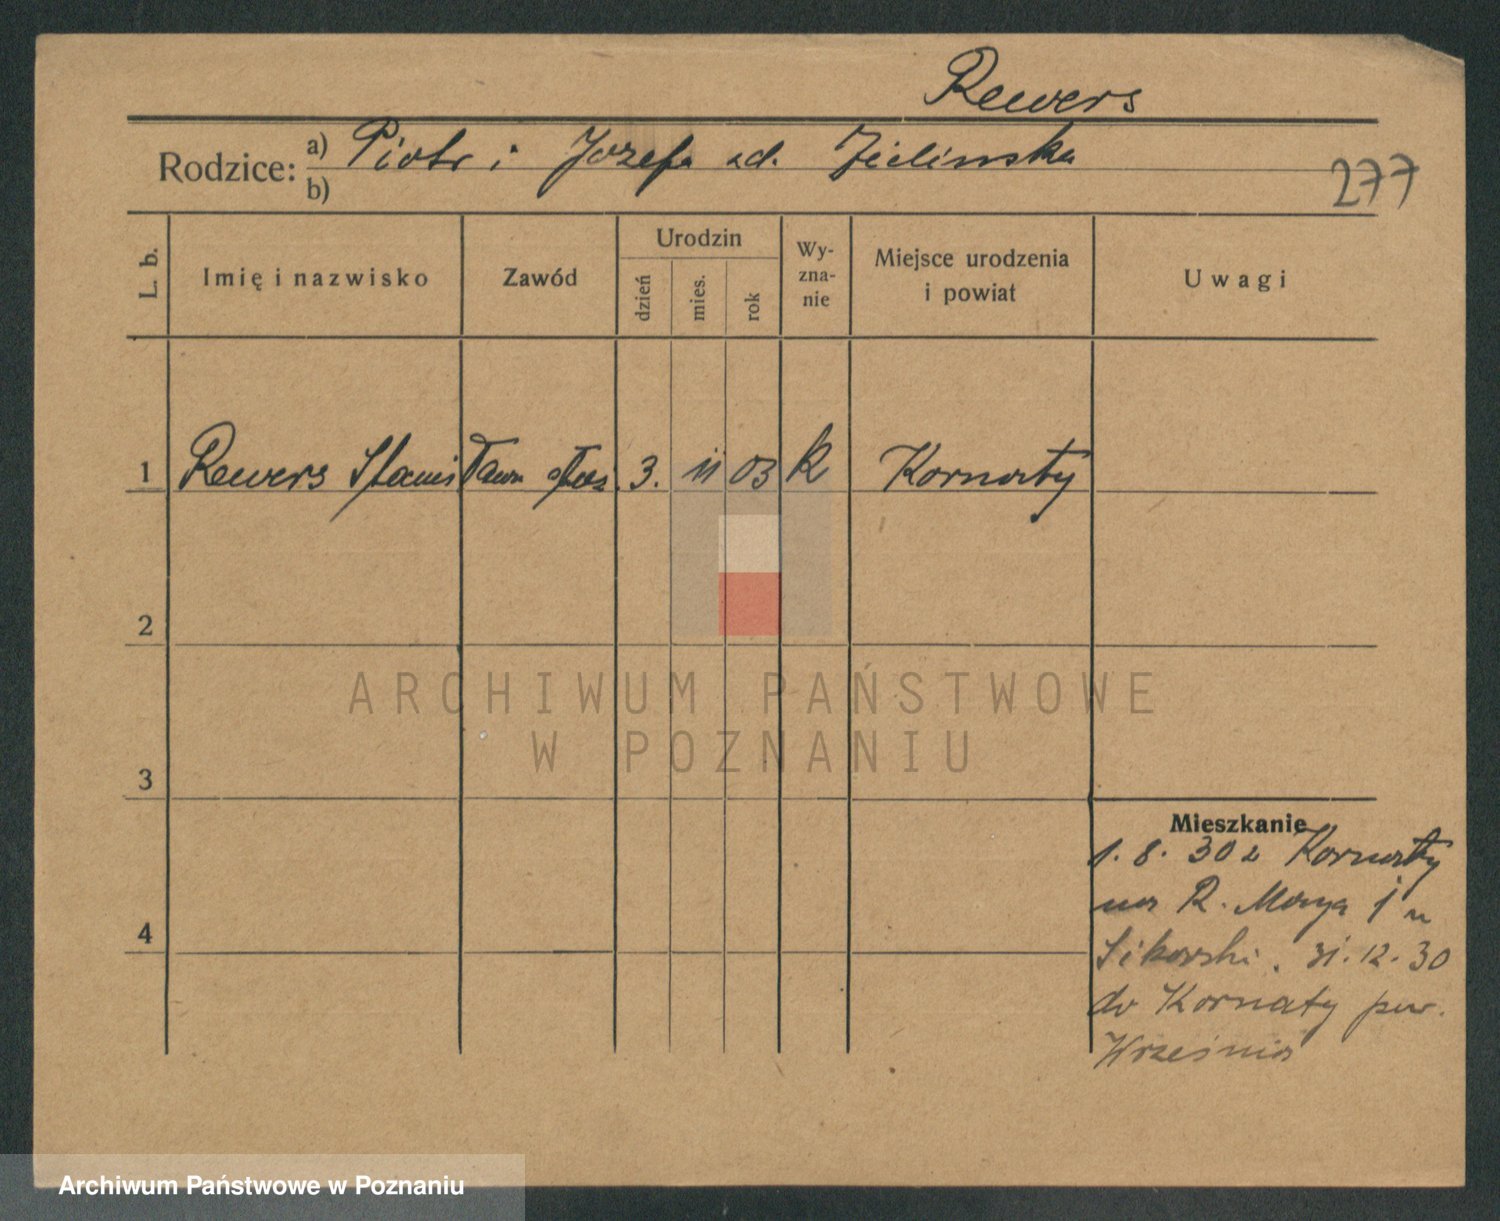 Rewers
Rodzice: a) Piotr i Jozefa zd. Zielinska
b)
277
L. b. Imię i nazwisko Zawód Urodzin dzień mies. rok Wy-zna-nie Miejsce urodzenia i powiat Uwagi
1 Rewers Stanisława służ. 3. 11 03 k Kornaty
2
ARCHIWUM PAŃSTWOWE
W POZNANIU
3
Mieszkanie
1. 8. 30 z Kornaty
na R. 1 u
4
Sikorski. 31. 12. 30
do Kornaty pow.
Września
Archiwum Państwowe w Poznaniu